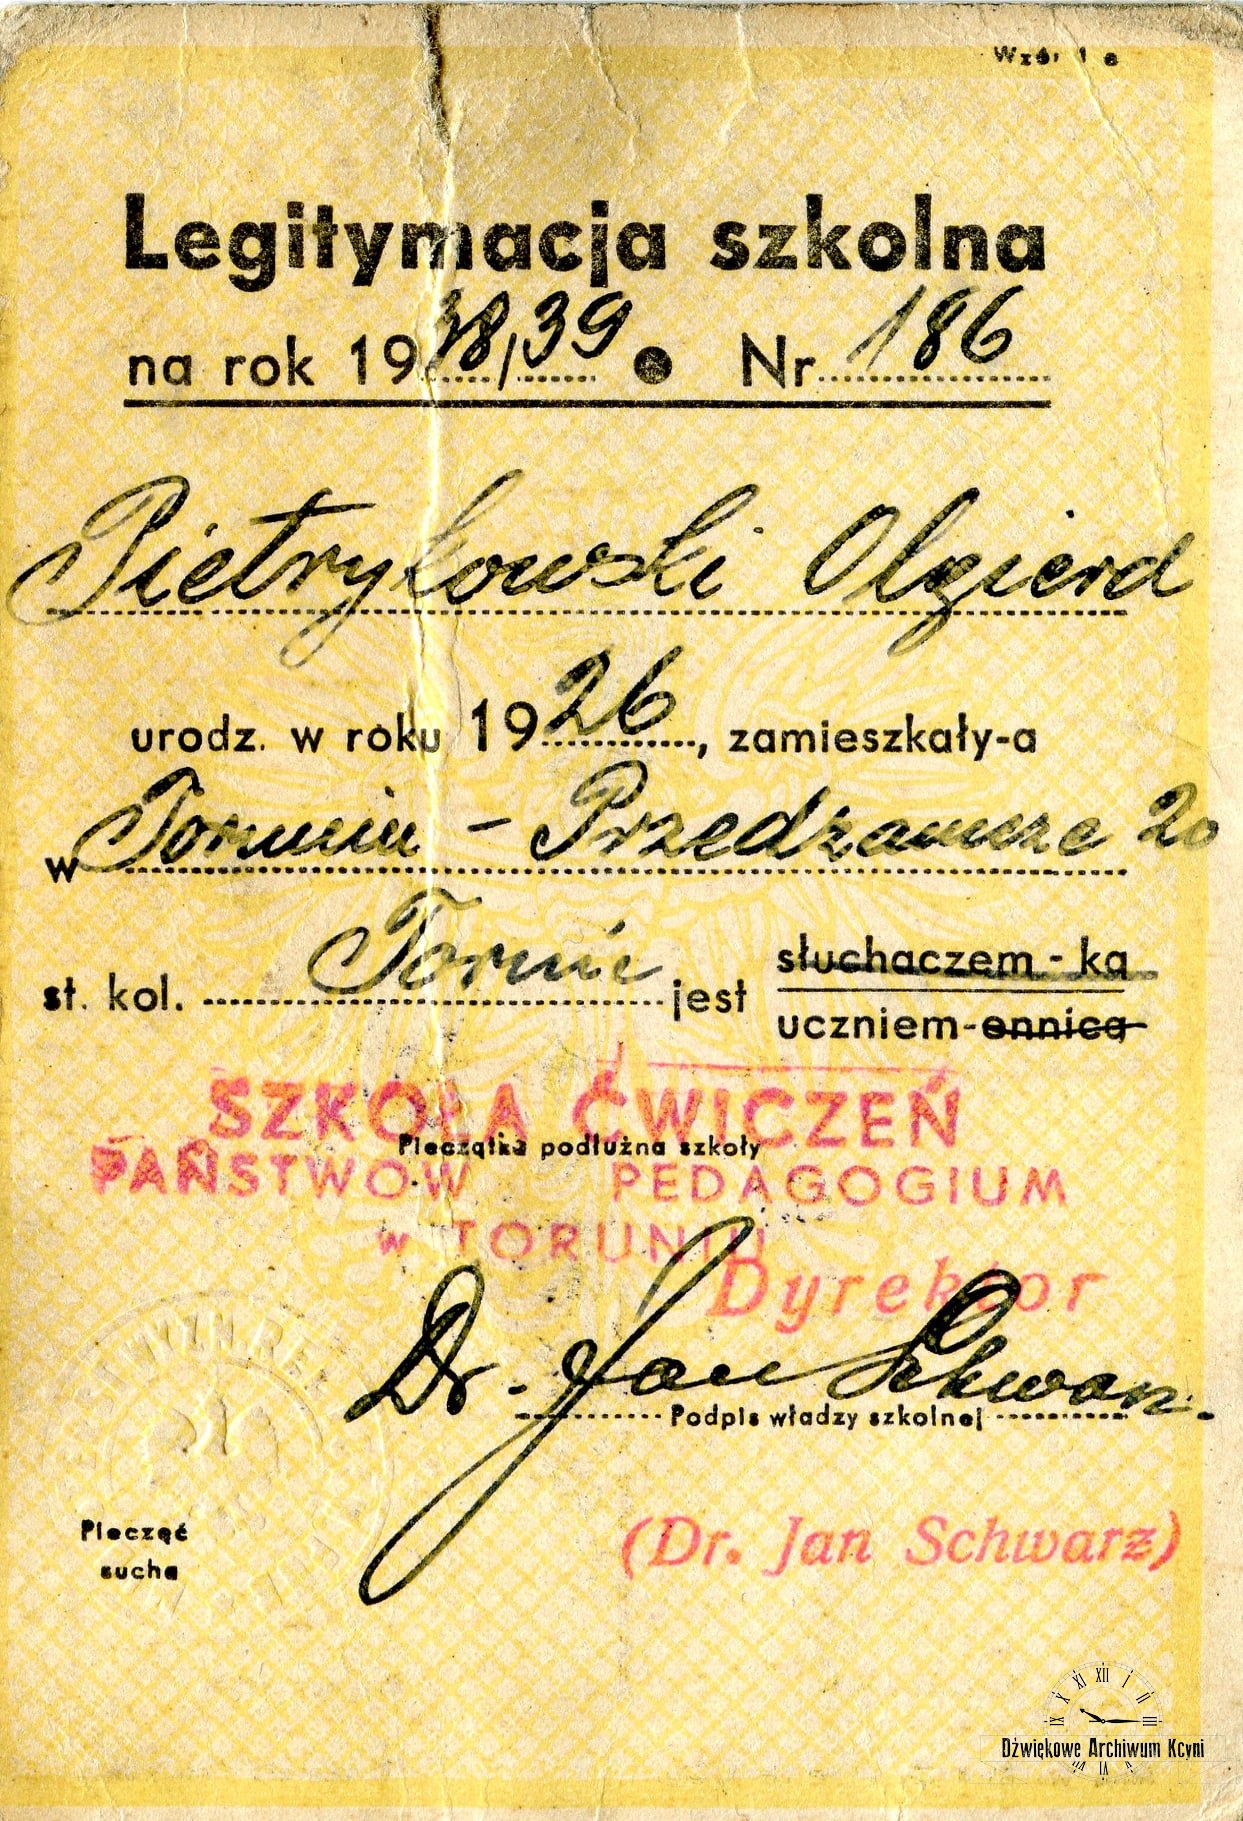 Wzór 1 a
Legitymacja szkolna
na rok 1938/39 • Nr 186
Pietrykowski Olgierd
urodz. w roku 1926, zamieszkały-a
w Toruniu - Przedzamcze 20
st. kol. Toruń jest słuchaczem-ką
uczniem-ennicą
SZKOŁA ĆWICZEŃ
Pieczątka podłużna szkoły
PAŃSTWOW PEDAGOGIUM
w TORUNIU
Dyrektor
Dr. Jan Schwarz.
Podpis władzy szkolnej
Pieczęć
sucha
(Dr. Jan Schwarz)
XII I II III VI IX X XI
Dźwiękowe Archiwum Kcyni